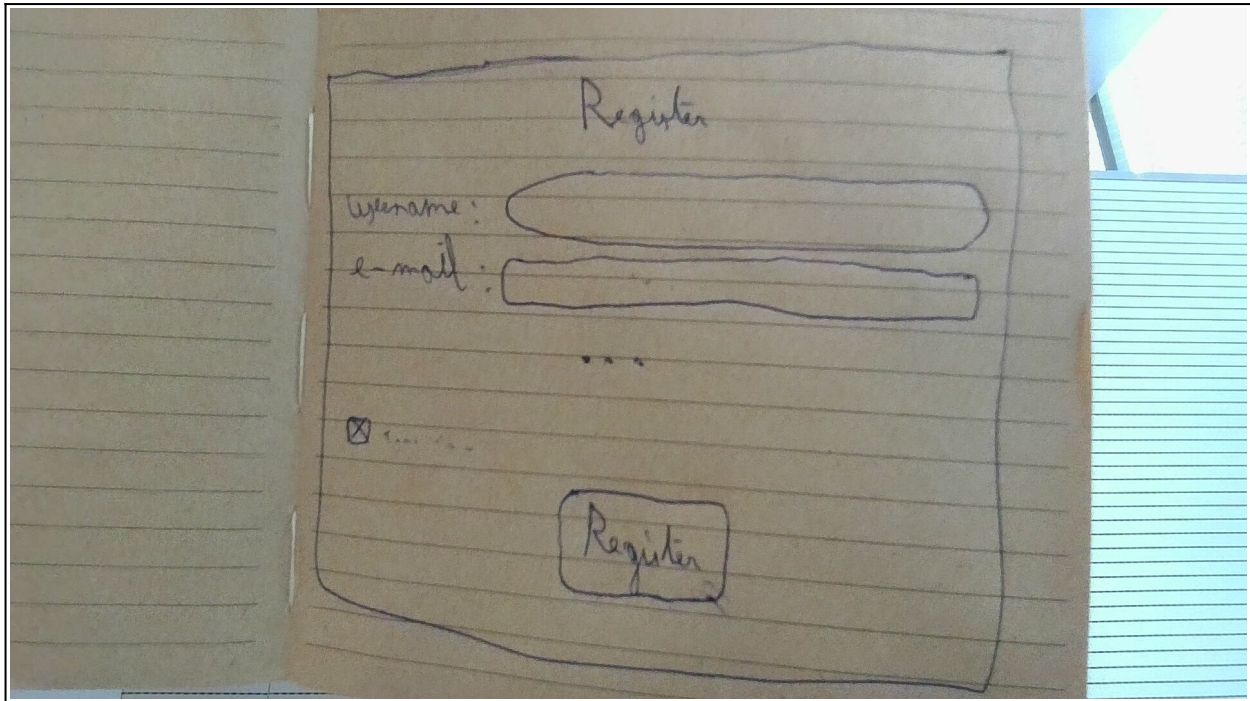 Register
username:
e-mail:
...
Register